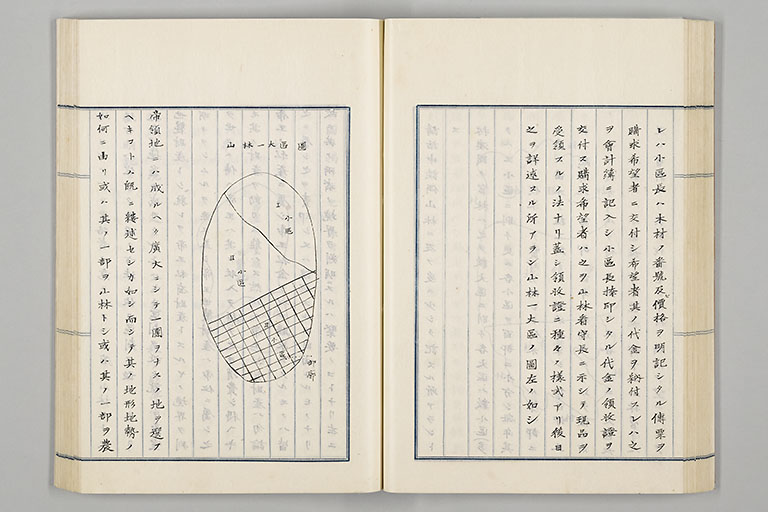 レハ小區長ハ木材ノ番號及價格ヲ明記シタル傳票ヲ
購求希望者ニ交付シ希望者其ノ代金ヲ納付スレハ之
ヲ會計簿ニ記入シ小區長捺印シタル代金ノ領收證ヲ
交付ス購求希望者ハ之ヲ山林看守長ニ示シテ現品ヲ
受領スルノ法ナリ蓋シ領收證ニ種々ノ樣式アリ後日
之ヲ詳述スル所アラン山林一大區ノ圖左ノ如シ
山林一大區圖
小區
小區
小區
帝領地ニハ成ルヘク廣大ニシテ一團ヲナスノ地ヲ選フ
ヘキコトハ既ニ縷述セシカ如シ而シテ其ノ地形地勢ノ
如何ニ由リ或ハ其ノ一部ヲ山林トシ或ハ其ノ一部ヲ農